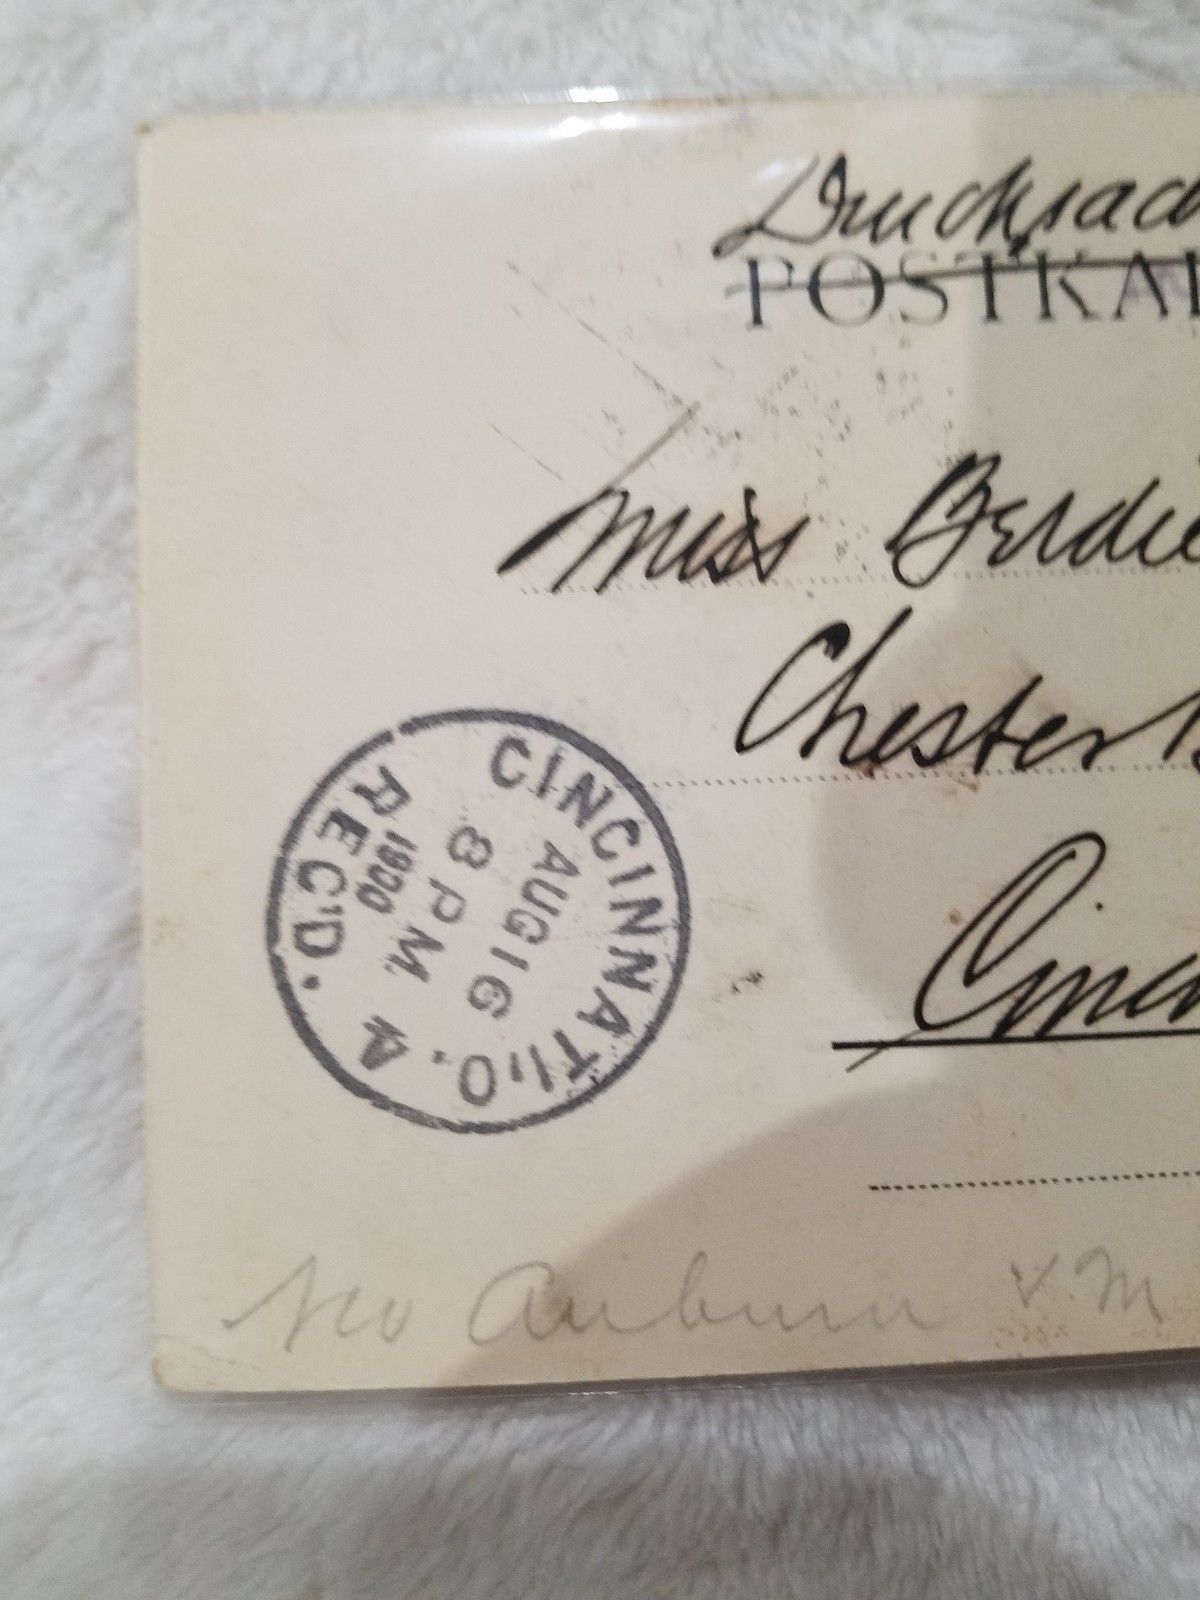 Drucksac
POSTKA
Miss Berdie
Chester
Cin
CINCINNATI, O.
AUG 16
8 PM
1900
REC'D.
Auburn